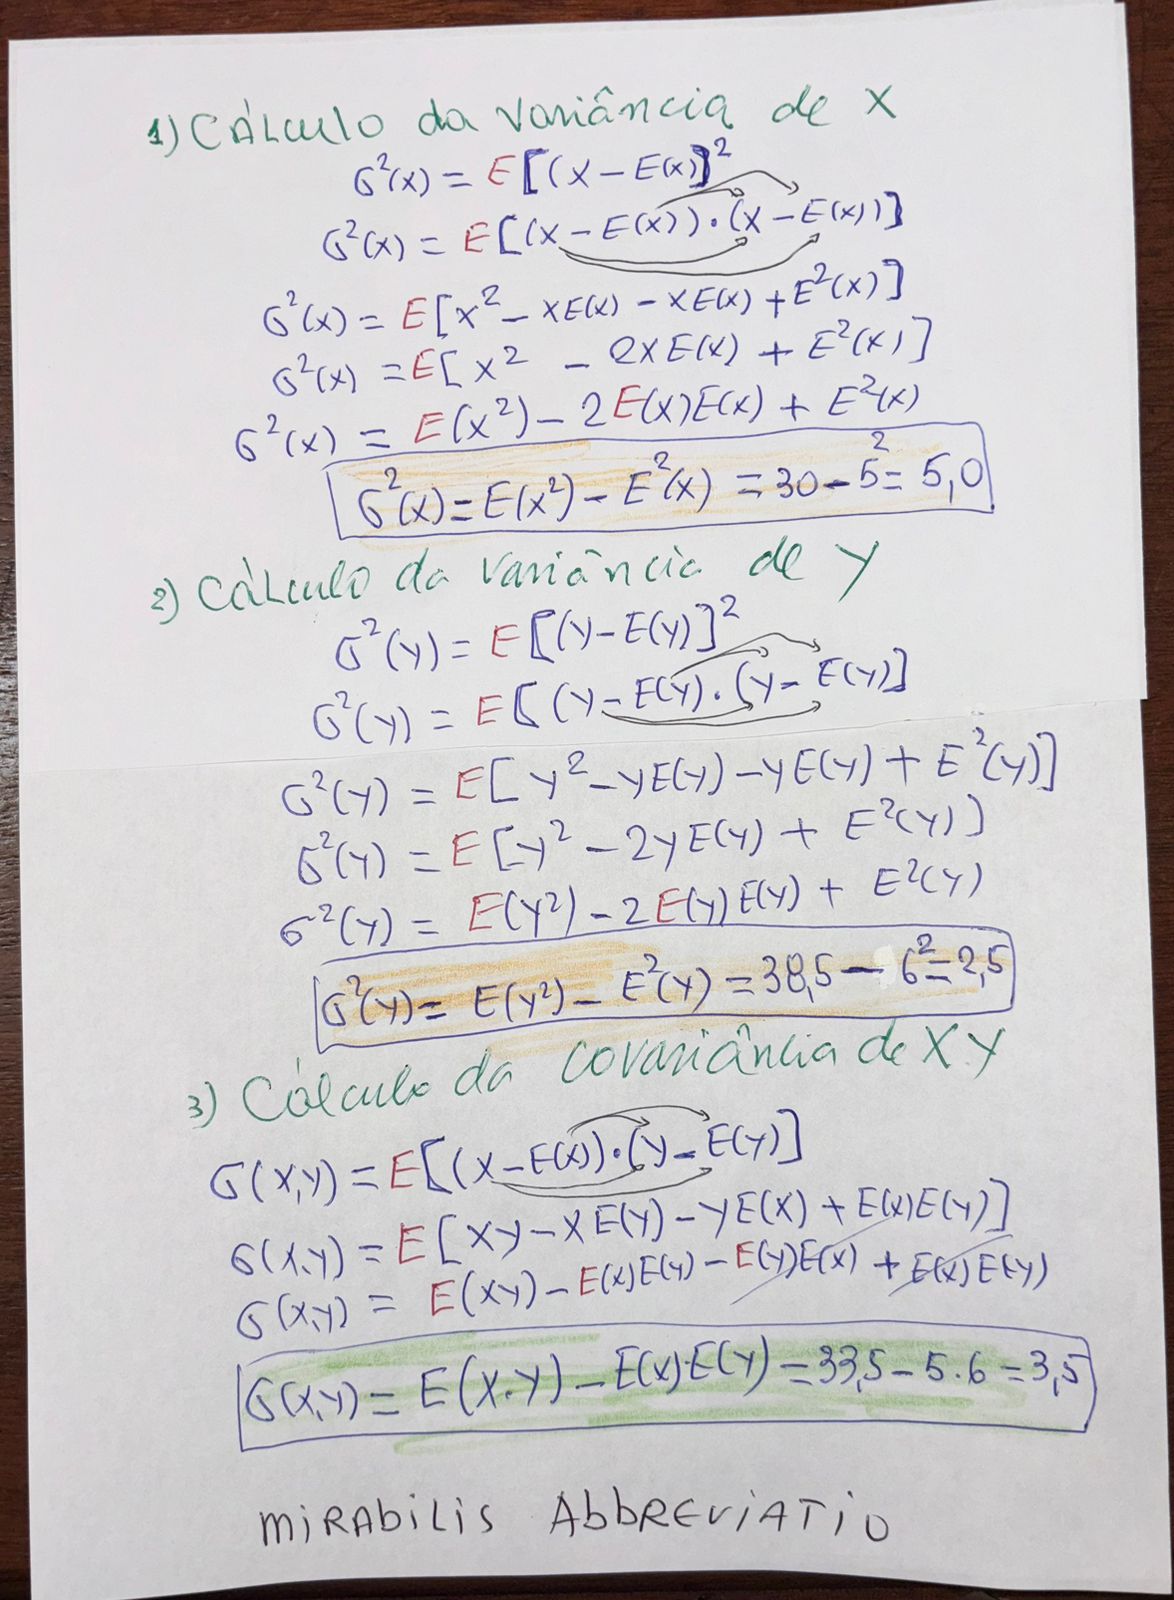 1) CÁLCULO da variância de X
σ²(x) = E[(x − E(x)]²
σ²(x) = E[(x − E(x)).(x − E(x))]
σ²(x) = E[x² − xE(x) − xE(x) + E²(x)]
σ²(x) = E[x² − 2xE(x) + E²(x)]
σ²(x) = E(x²) − 2E(x)E(x) + E²(x)
σ²(x) = E(x²) − E²(x) = 30 − 5² = 5,0
2) CÁLCULO da variância de y
σ²(y) = E[(y − E(y)]²
σ²(y) = E[(y − E(y).(y − E(y)]
σ²(y) = E[y² − yE(y) − yE(y) + E²(y)]
σ²(y) = E[y² − 2yE(y) + E²(y)]
σ²(y) = E(y²) − 2E(y)E(y) + E²(y)
σ²(y) = E(y²) − E²(y) = 38,5 − 6² = 2,5
3) Cálculo da covariância de X.Y
σ(x,y) = E[(x − E(x)).(y − E(y)]
σ(x,y) = E[xy − xE(y) − yE(x) + E(x)E(y)]
σ(x,y) = E(xy) − E(x)E(y) − E(y)E(x) + E(x)E(y)
σ(x,y) = E(x.y) − E(x).E(y) = 33,5 − 5.6 = 3,5
MiRAbiLis AbbREViATiO